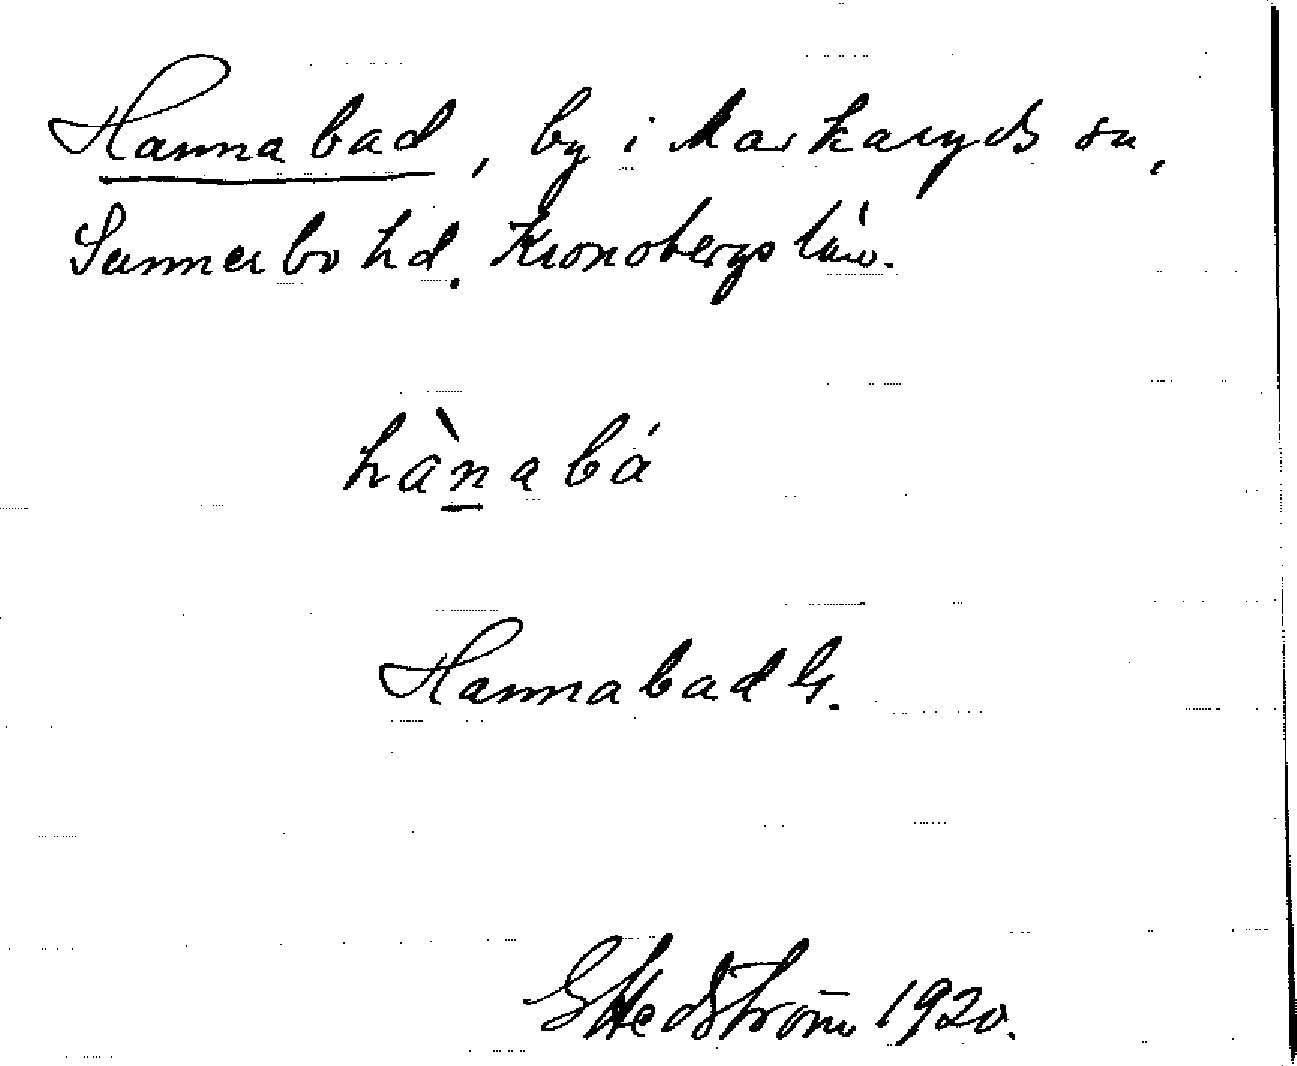 Hannabad, by i Markaryds sn,
Sunnerbo hd. Kronobergs län.
hànabá
Hannabad G.
G Hedström 1920.